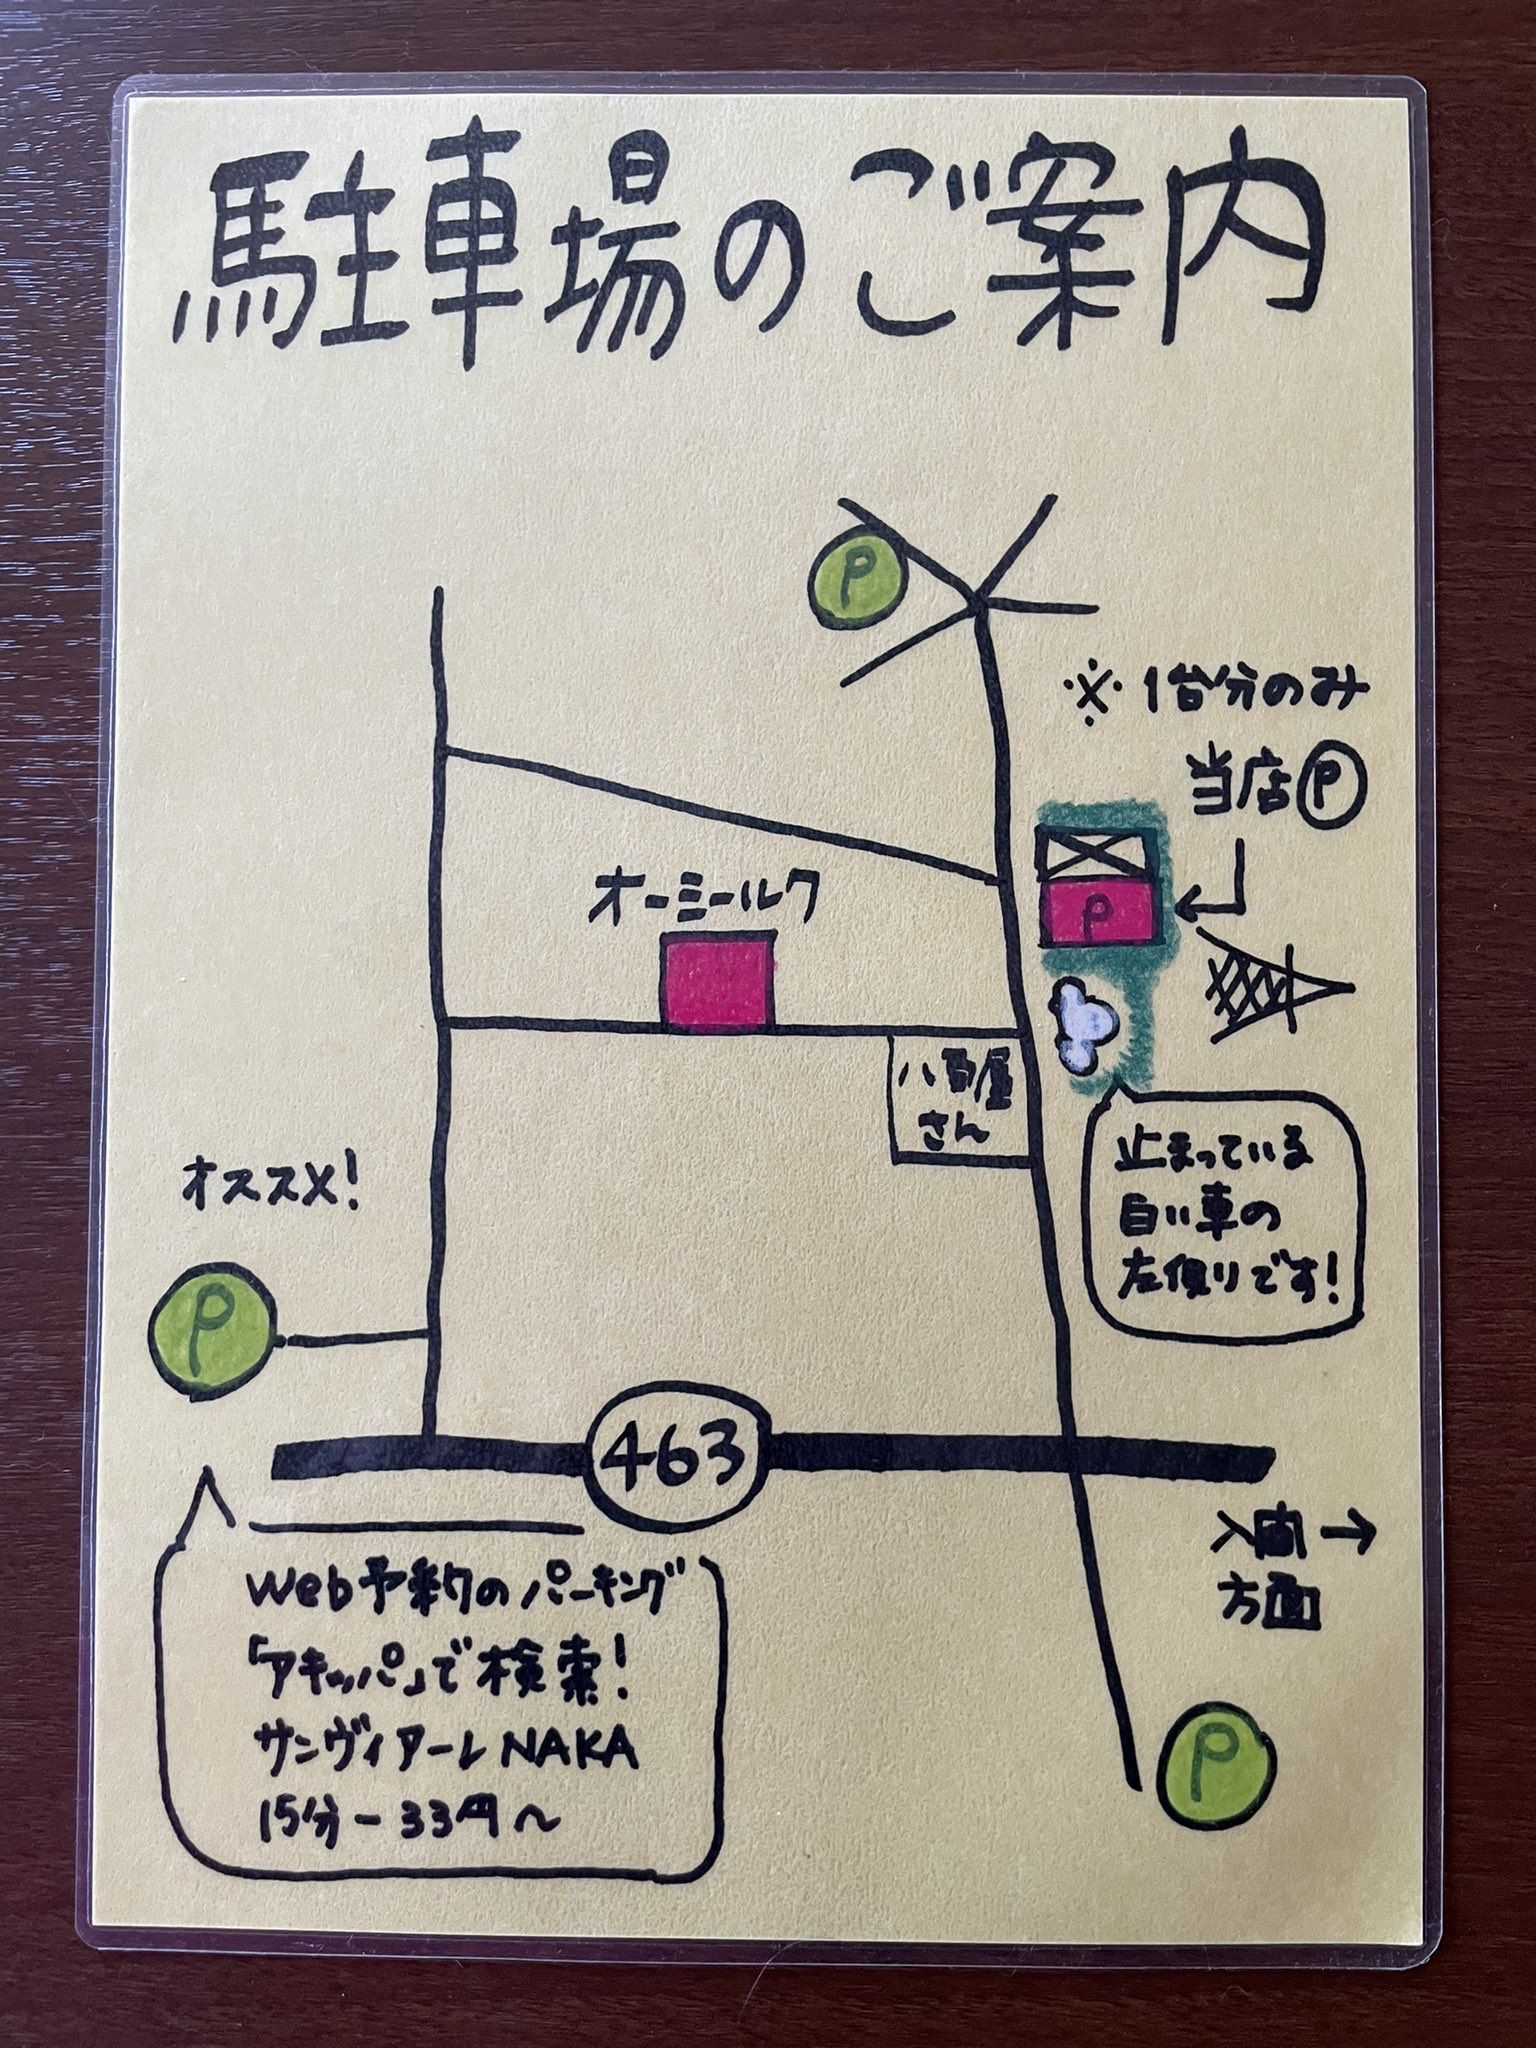 駐車場のご案内
P
※1台分のみ
当店P
P
オーミールク
八百屋
さん
止まっている
白い車の
左側りです!
オススメ!
P
463
入間→
方面
Web予約のパーキング
「アキッパ」で検索!
サンヴィアーレNAKA
15分-33円~
P